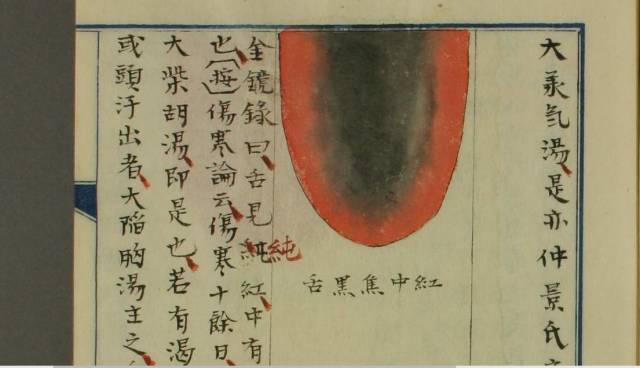 大承气湯是亦仲景氏
紅中焦黑舌
金鏡錄曰舌見純紅中有
也〔按〕傷寒論云傷寒十餘日
大柴胡湯即是也若有渴
或頭汗出者大陷胸湯主之